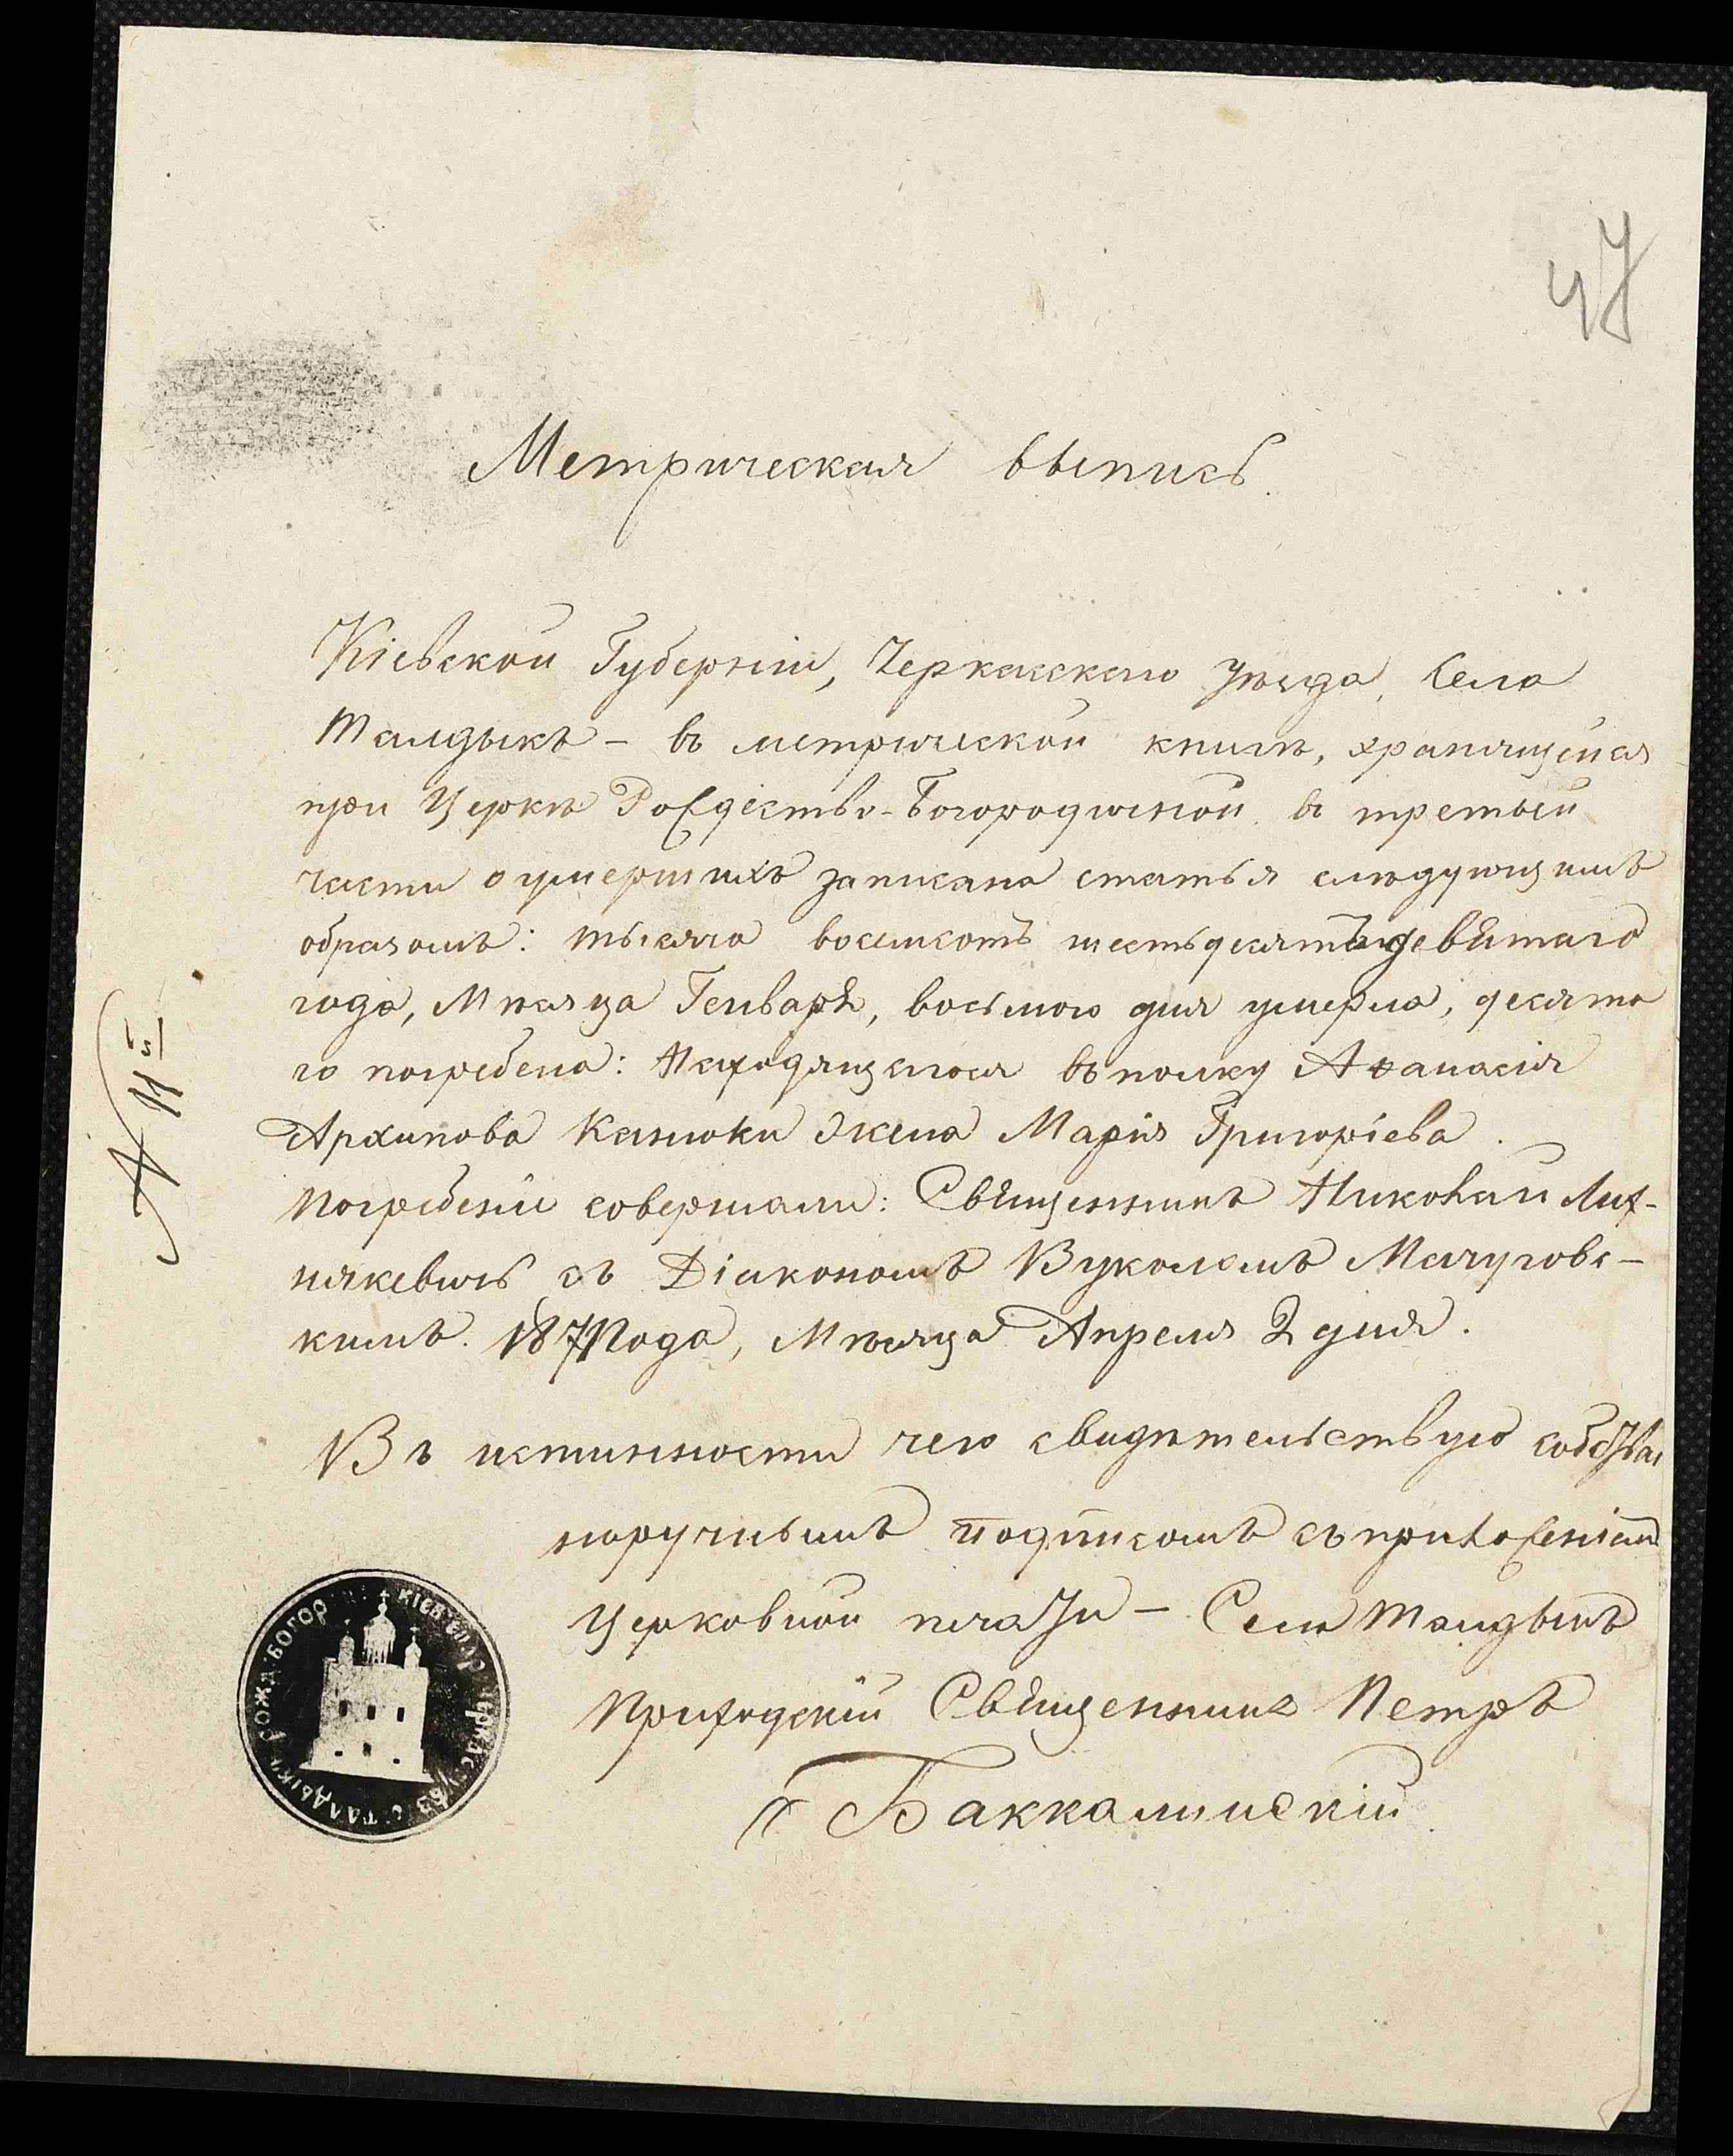 47
Метрическая выпись.
Кіевской Губерніи, Черкасскаго уѣзда, Села
Талдыкъ – въ метрической книгѣ, хранящейся
при Церквѣ Рождество-Богородичной въ третьей
части о умершихъ записана статья слѣдующимъ
образомъ: тысяча восемсотъ шестьдесятъ девятаго
года, Мѣсяца Генваря, восьмого дня умерла, десята
го погребена: Находящегося въ полку Аѳанасія
Архипова Канюки жена Марія Григоріева.
Погребеніе совершали: Священникъ Николай Лих-
някевичь съ Діакономъ Вуколомъ Мачуговс-
кимъ. 1871 года, Мѣсяца Апреля 2 дня.
Въ истинности чего свидѣтельствую собстве
норучнымъ подписомъ съ приложеніемъ
Церковной печати – Села Талдыкъ
Приходскій Священникъ Петръ
Баккалинскій
№ 11